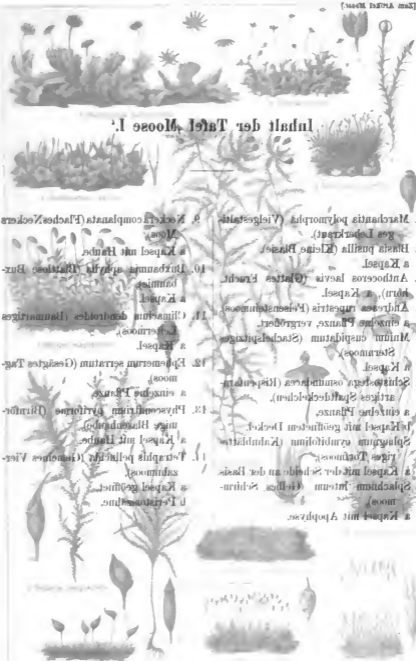 [Zum Artikel Moose.]
Inhalt der Tafel ‚Moose I.‘
Marchantia polymorpha (Vielgestalti-
ges Leberkraut).
Blasia pusilla (Kleine Blasie).
a Kapsel.
Anthoceros laevis (Glattes Frucht-
horn), a Kapsel.
Andreaea rupestris (Felsensteinmoos)
a einzelne Pflanze, vergrößert.
Mnium cuspidatum (Stachelspitziges
Sternmoos).
a Kapsel.
Schistostega osmundacea (Rispenfarn-
artiges Spaltdeckelchen).
a einzelne Pflanze,
b Kapsel mit geöffnetem Deckel.
Sphagnum cymbifolium (Kahnblätte-
riges Torfmoos).
a Kapsel mit der Scheide an der Basis.
Splachnum luteum (Gelbes Schirm-
moos).
a Kapsel mit Apophyse.
9. Neckera complanata (Flaches Neckers
Moos).
a Kapsel mit Haube.
10. Buxbaumia aphylla (Blattlose Bux-
baumie).
a Kapsel.
11. Climacium dendroides (Baumartiges
Leitermoos).
a Kapsel.
12. Ephemerum serratum (Gesägtes Tag-
moos).
a einzelne Pflanze.
13. Physcomitrium pyriforme (Birnför-
mige Blasenhaube).
a Kapsel mit Haube.
14. Tetraphis pellucida (Gemeines Vier-
zahnmoos).
a Kapsel geöffnet.
b Peristomzähne.